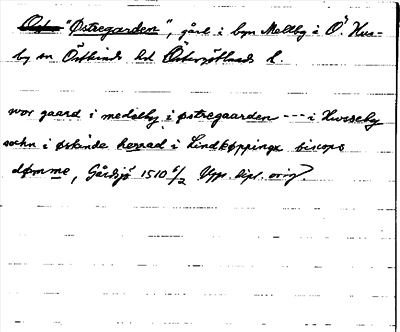 "Østregarden", gård i byn Meltby i Ö. Hus-
by sn Östkinds hd Östergötlands l.
wor gaard i medelby i østregaarden --- i Hwseby
sokn i øskinde herrad i Lindkøppinga biscops
dømme, Gårdsjö 1510 6/2 Upps. dipl. orig.